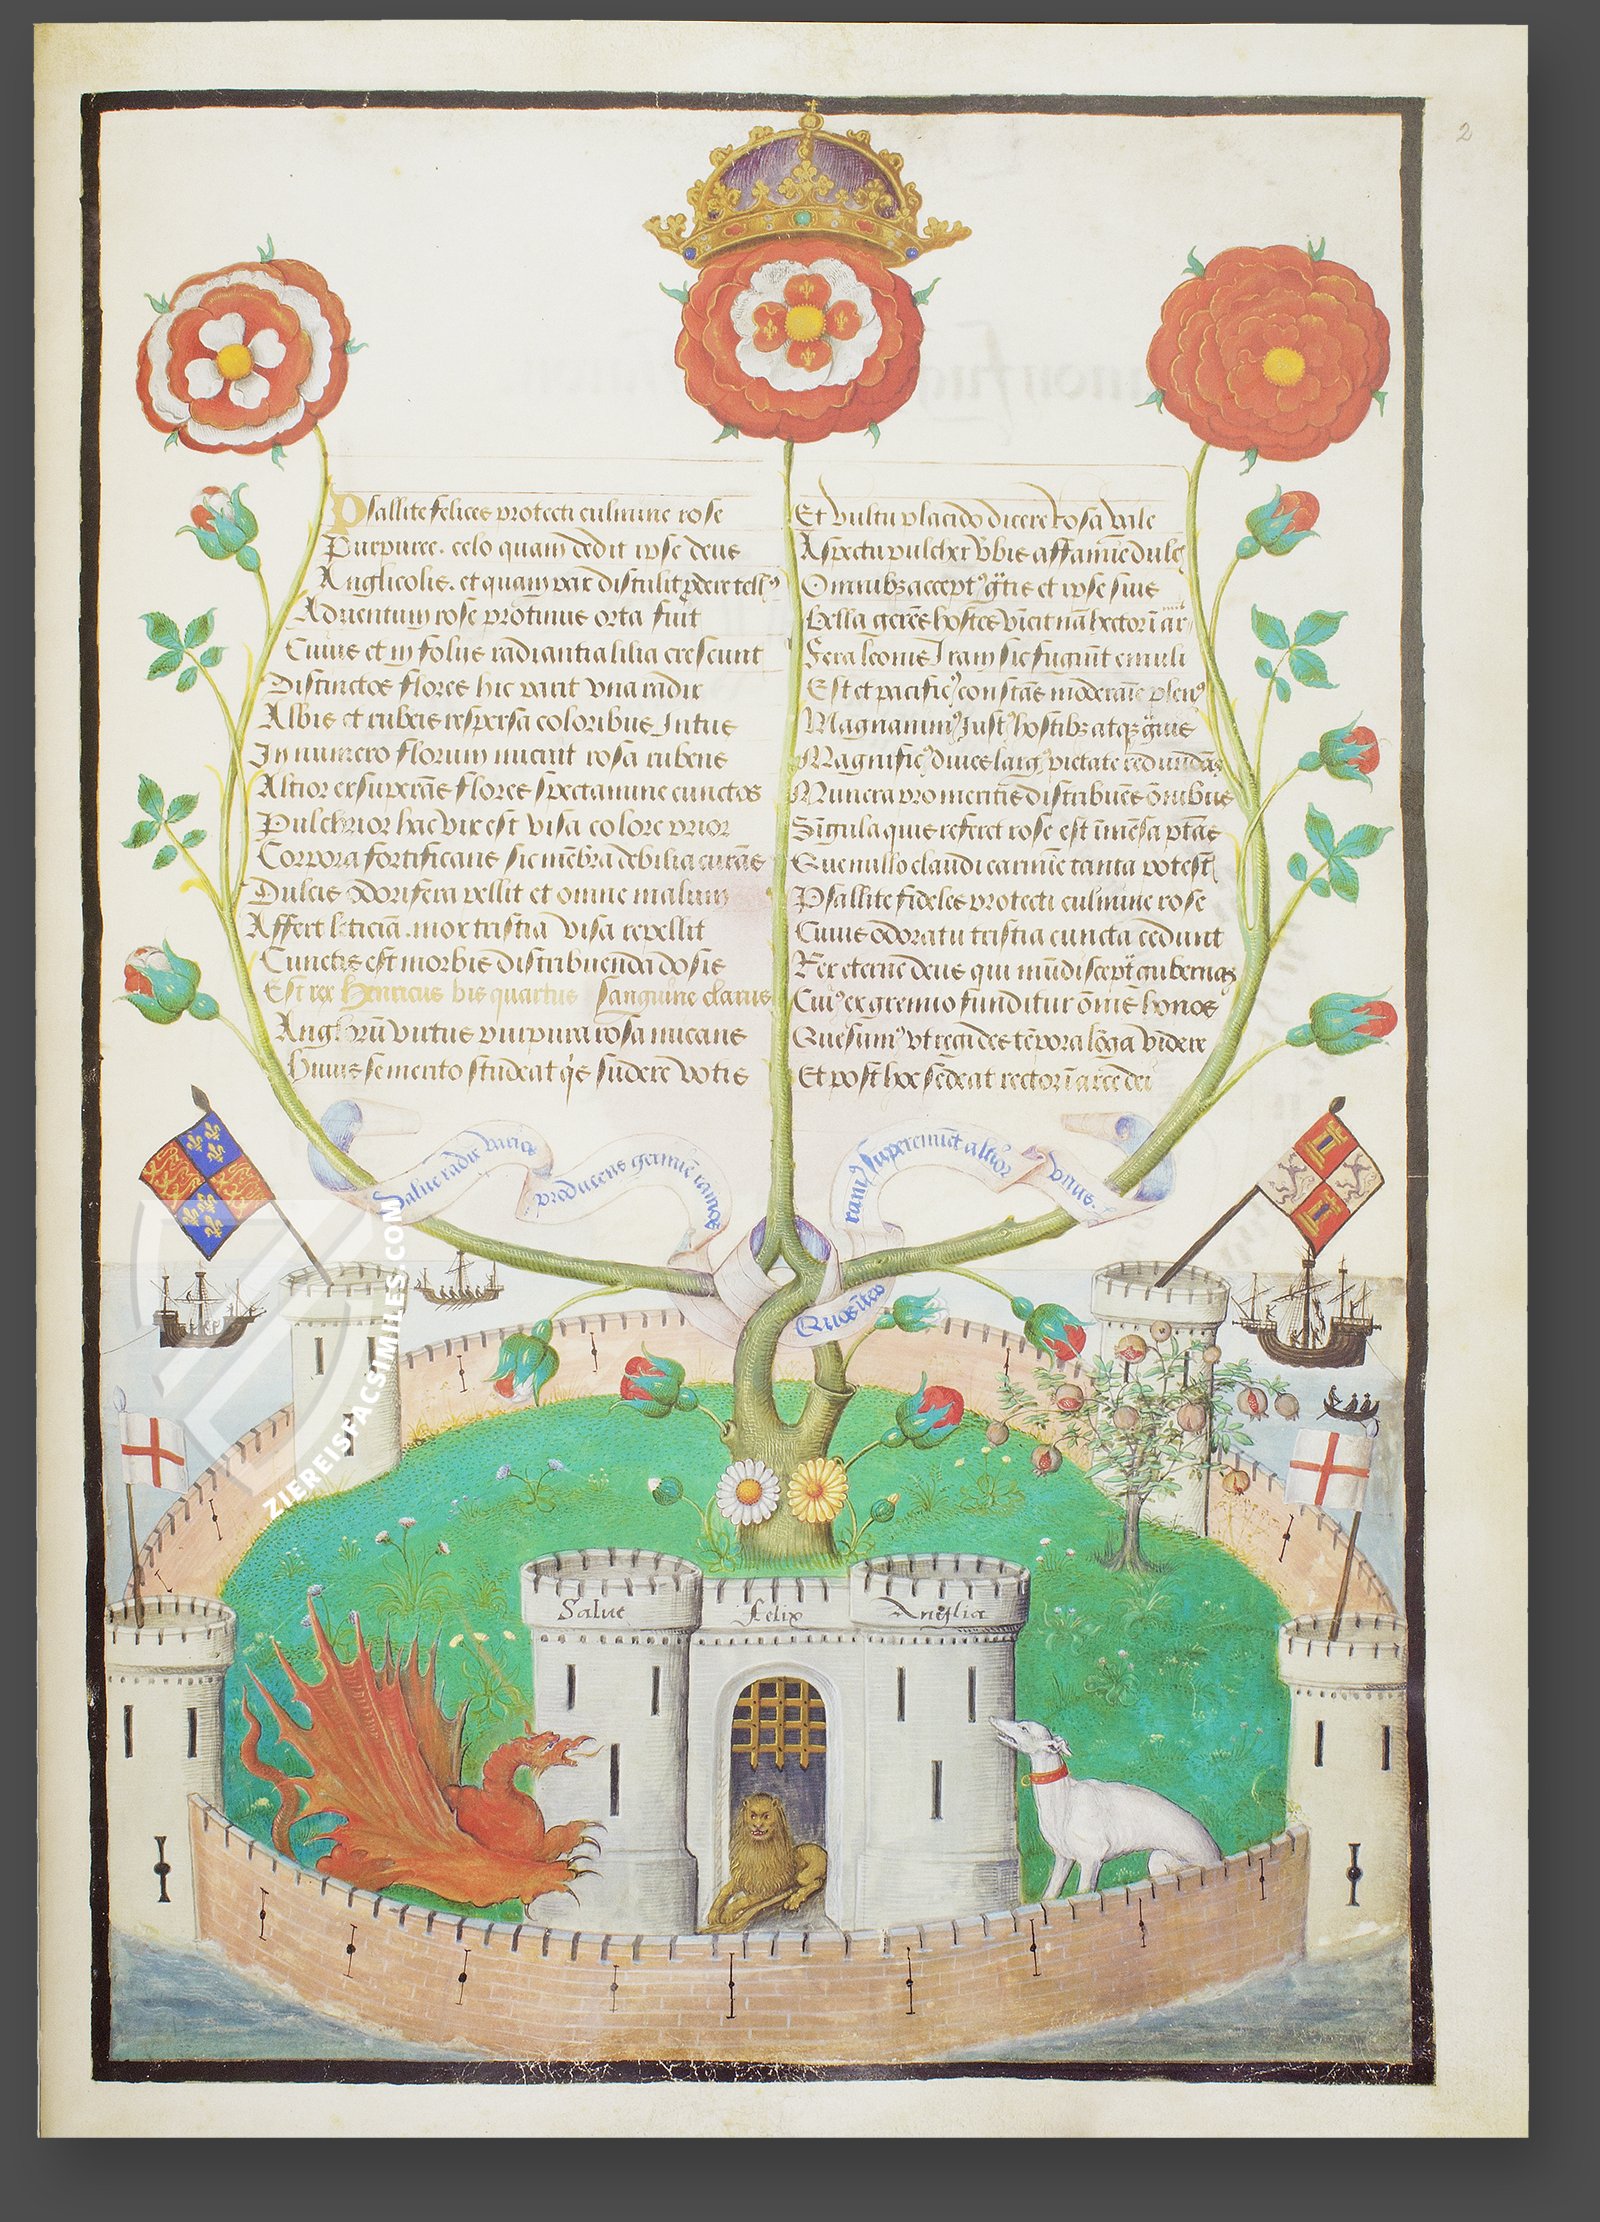 2
Psallite felices protecti culmine rose
Purpuree. celo quam dedit ipse deus
Anglicolis. et quam par distulit
Ad nentum rose protinus orta fuit
Cuius et in solus radiantia lilia crescunt
Distinctos flores hic parit una radix
Albis et rubeis respersa coloribus Intus
In numero florum nucuit rosa rubens
Altior exsuperās flores spectamine cunctos
Pulchrior hac vix est visa colore prior
Corpora fortificans sic mēbra debilia curās
Dulcis odorifera pellit et omne malum
Affert leticiā. mox tristia visa repellit
Cunctis est morbis distribuenda dosis
Est rex Henricus bis quartus sanguine clarus
Anglorū virtus purpura rosa micans
Huius se merito studeat qis sudere votis
Et vultu placido dicere rosa vale
Aspectu pulcher vbis affamīe dulc
Omnibz accept9 gtis et ipse suis
Bella gerēs hostes vicit nā hectorī ar
Fera leonis Iram sic fugiūt emuli
Est et pacific9 constās moderaīe plen9
Magnanim9 Just9 hostibz atqz
Magnific9 dives larg9 pietate redundās
Munera pro meritis distribuēs ōnibus
Singula quis referet rose est īmēsa ptās
Que nullo claudi carmīe tanta potest
Psallite fideles protecti culmine rose
Cuius odoratu tristia cuncta cedunt
Rex eterne deus qui mūdi sceptra gubernas
Cui9 ex gremio funditur ōnis honos
Quesum9 vt regi des tēpora lōga videre
Et post hec sedeat rectorī arce dei
Salue radix varios
producens germine ramos
Quos īter
ram9 supereminet altior
vnus.
Salue felix Anglia
ZIEREISFACSIMILES.COM